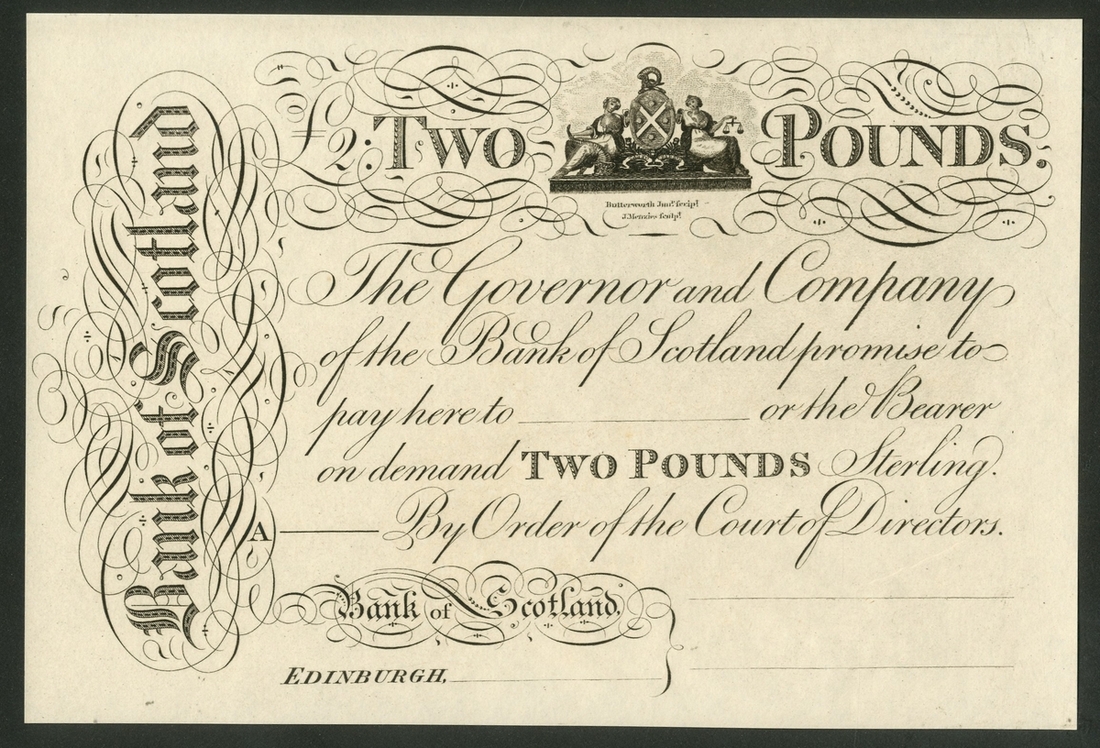 Bank of Scotland
£2: TWO POUNDS.
Butterworth Junr. scrip!
J. Menzies sculp!
The Governor and Company
of the Bank of Scotland promise to
pay here to ____________ or the Bearer
on demand TWO POUNDS Sterling.
A ______ By Order of the Court of Directors.
Bank of Scotland.
EDINBURGH, ____________